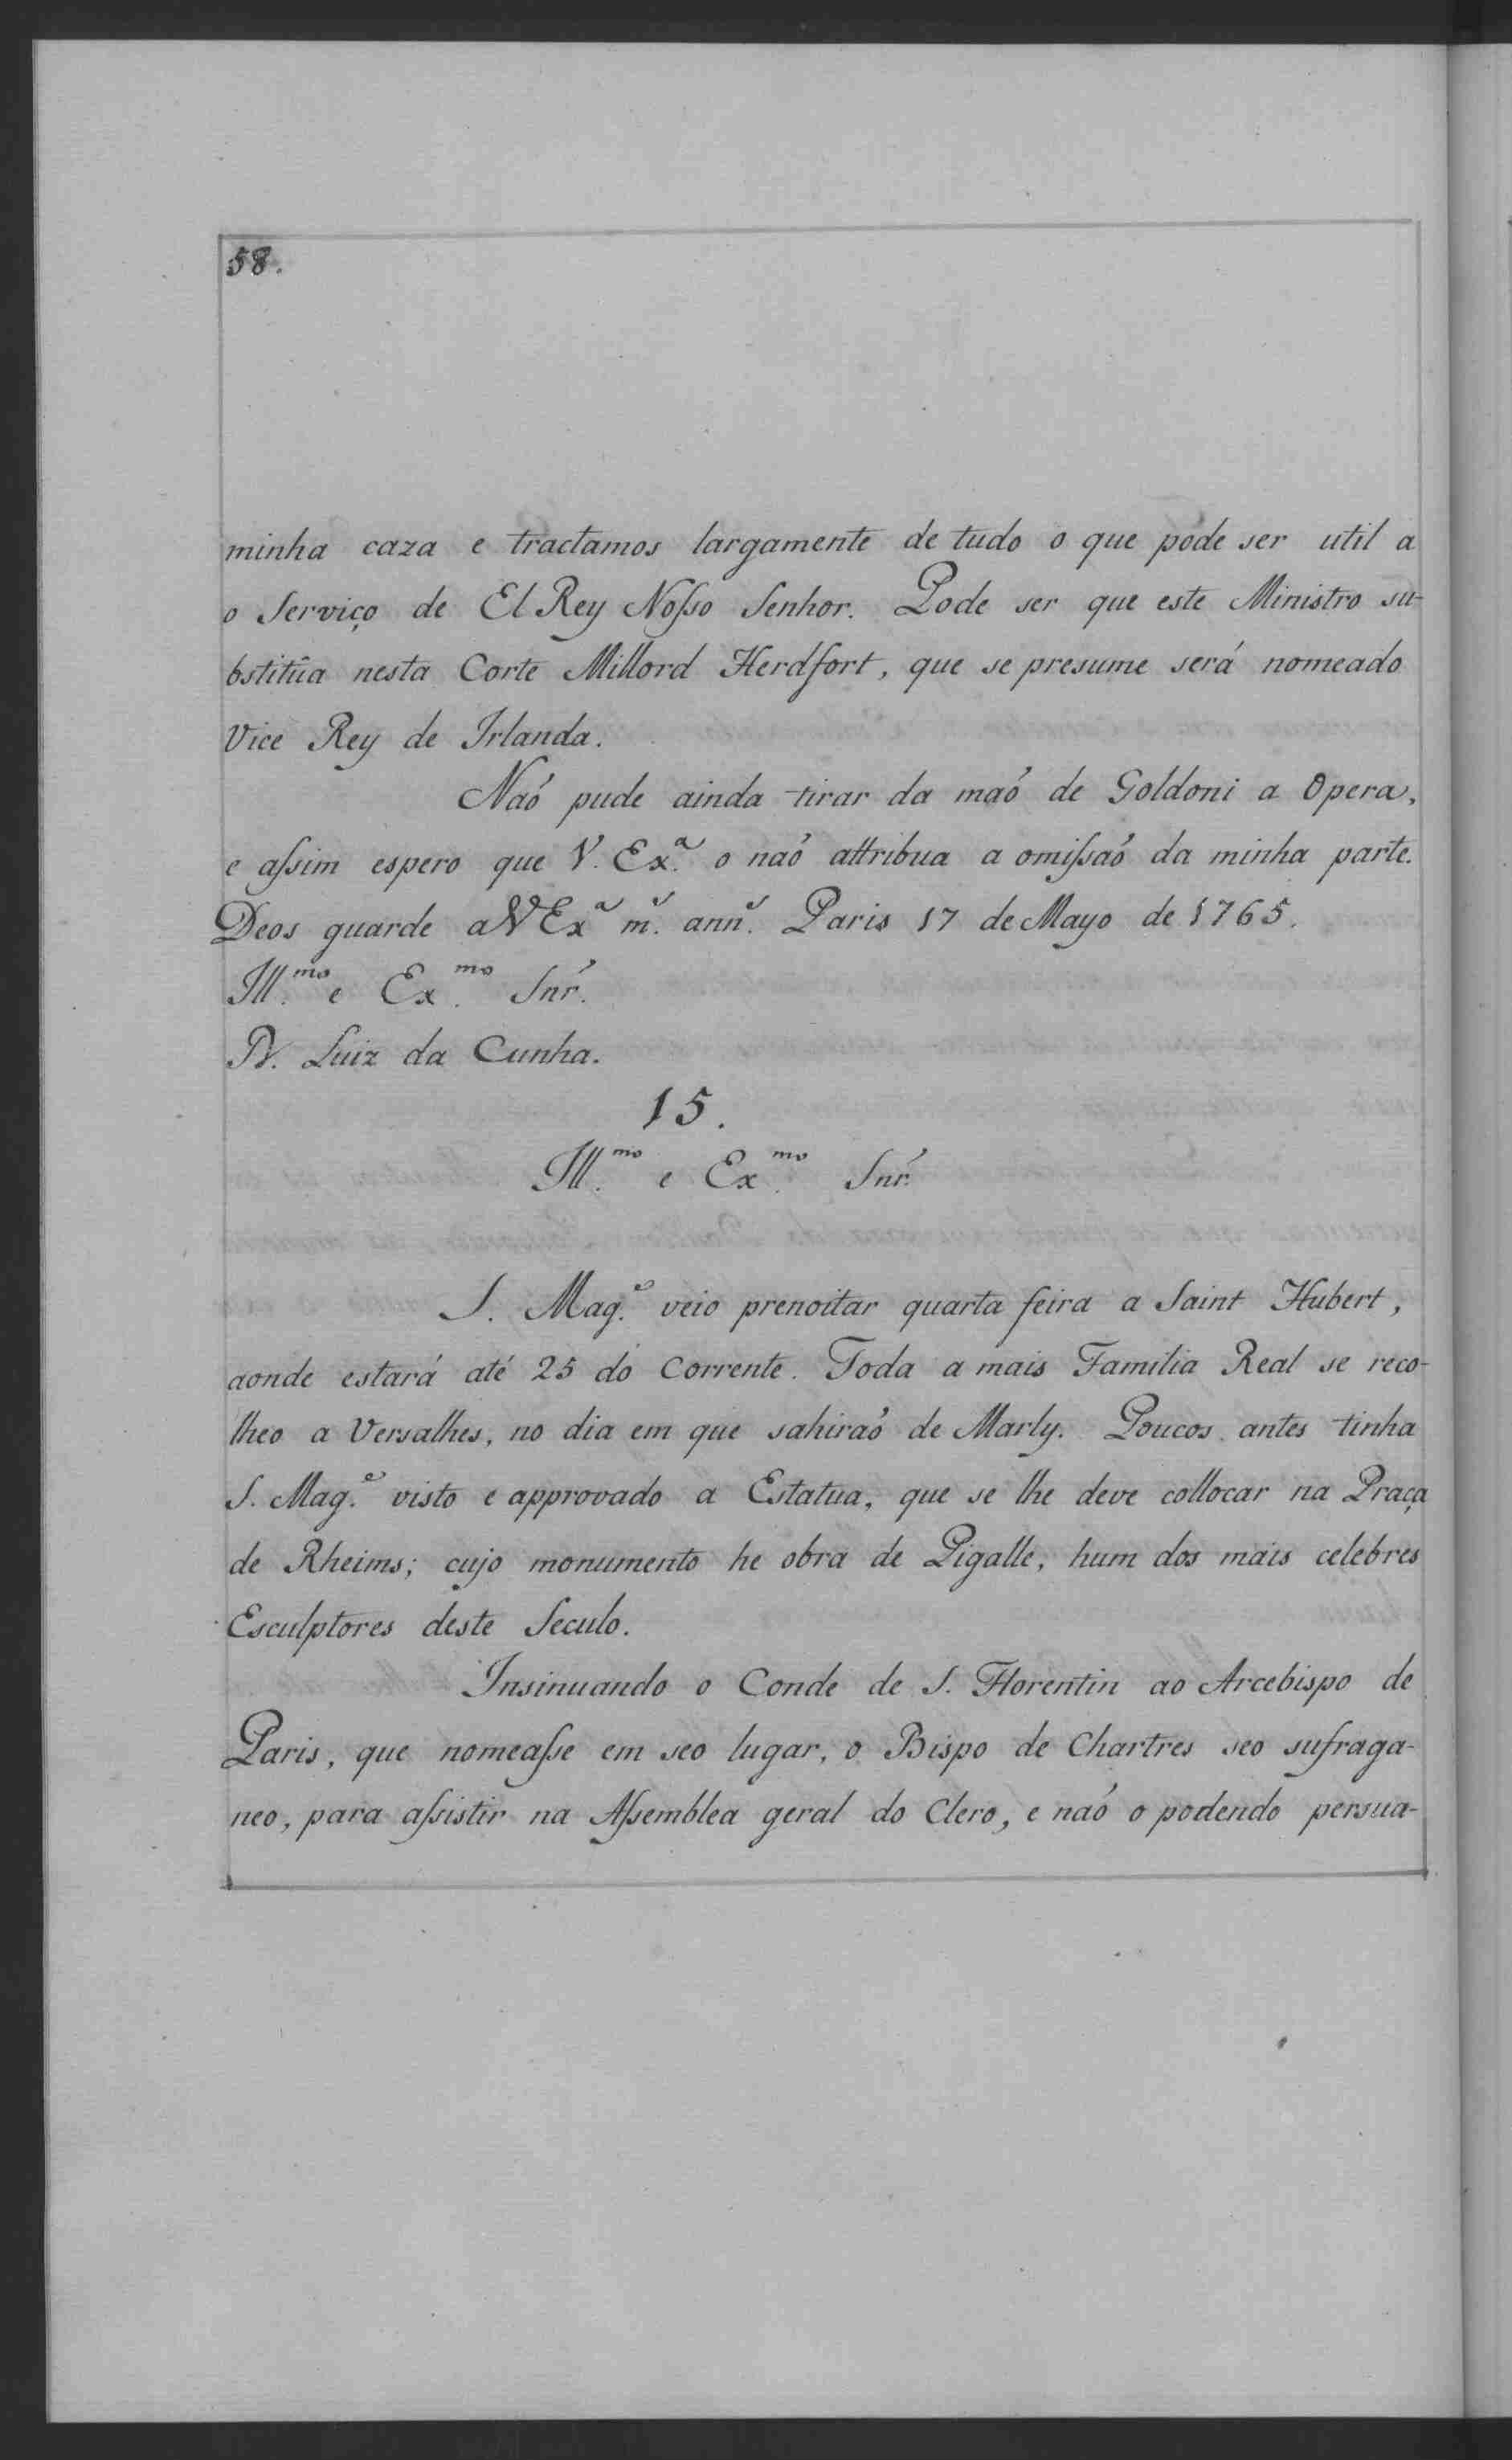 58.
minha caza e tractamos largamente de tudo o que póde ser util a
o Serviço de El Rey Noſso Senhor. Pode ser que este Ministro su-
bstitûa nesta Corte Millord Herdfort, que se presume será nomeado
Vice Rey de Irlanda.
Naó pude ainda tirar da maó de Goldoni a Opera,
e aſsim espero que V. Ex.ª o naó attribua a omiſsaó da minha parte.
Deos guarde a V Ex.ª m.ˢ ann.ˢ Paris 17 de Mayo de 1765.
Ill.ᵐᵒ e Ex.ᵐᵒ Snr̃.
D. Luiz da Cunha.
15.
Ill.ᵐᵒ e Ex.ᵐᵒ Snr̃.
S. Mag.ᵉ veio prenoitar quarta feira a Saint Hubert,
aonde estará até 25 do Corrente. Toda a mais Familia Real se reco-
lheo a Versalhes, no dia em que sahiraó de Marly. Poucos antes tinha
S. Mag.ᵉ visto e approvado a Estatua, que se lhe deve collocar na Praça
de Rheims; cujo monumento he obra de Pigalle, hum dos mais celebres
Esculptores deste Seculo.
Insinuando o Conde de S. Florentin ao Arcebispo de
Paris, que nomeaſse em seo lugar, o Bispo de Chartres seo sufraga-
neo, para aſsistir na Aſsemblea geral do Clero, e naó o podendo persua-